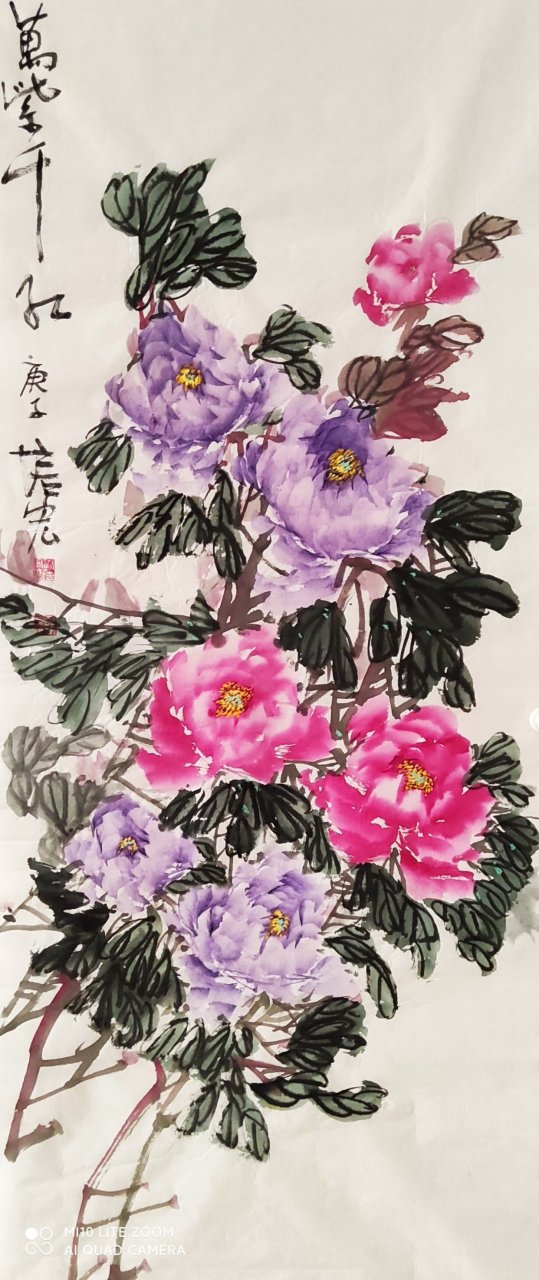 萬紫千紅
庚子
MI10 LITE ZOOM
AI QUAD CAMERA